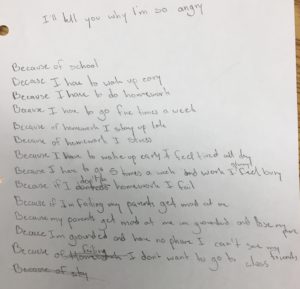 I'll tell you why I'm so angry
Because of school
Because I have to wake up early
Because I have to do homework
Because I have to go five times a week
Because of homework I stay up late
Because of homework I stress
Because I have to wake up early I feel tired all day
Because I have to go 5 times a week and work I feel
Because if I don't do homework I fail
Because if Im failing my parents get mad at me
Because my parents get mad at me im grounded and lose my phone
Because Im grounded and have no phone I can't see my friends
Because of failing I don't want to go to class
Because of stay